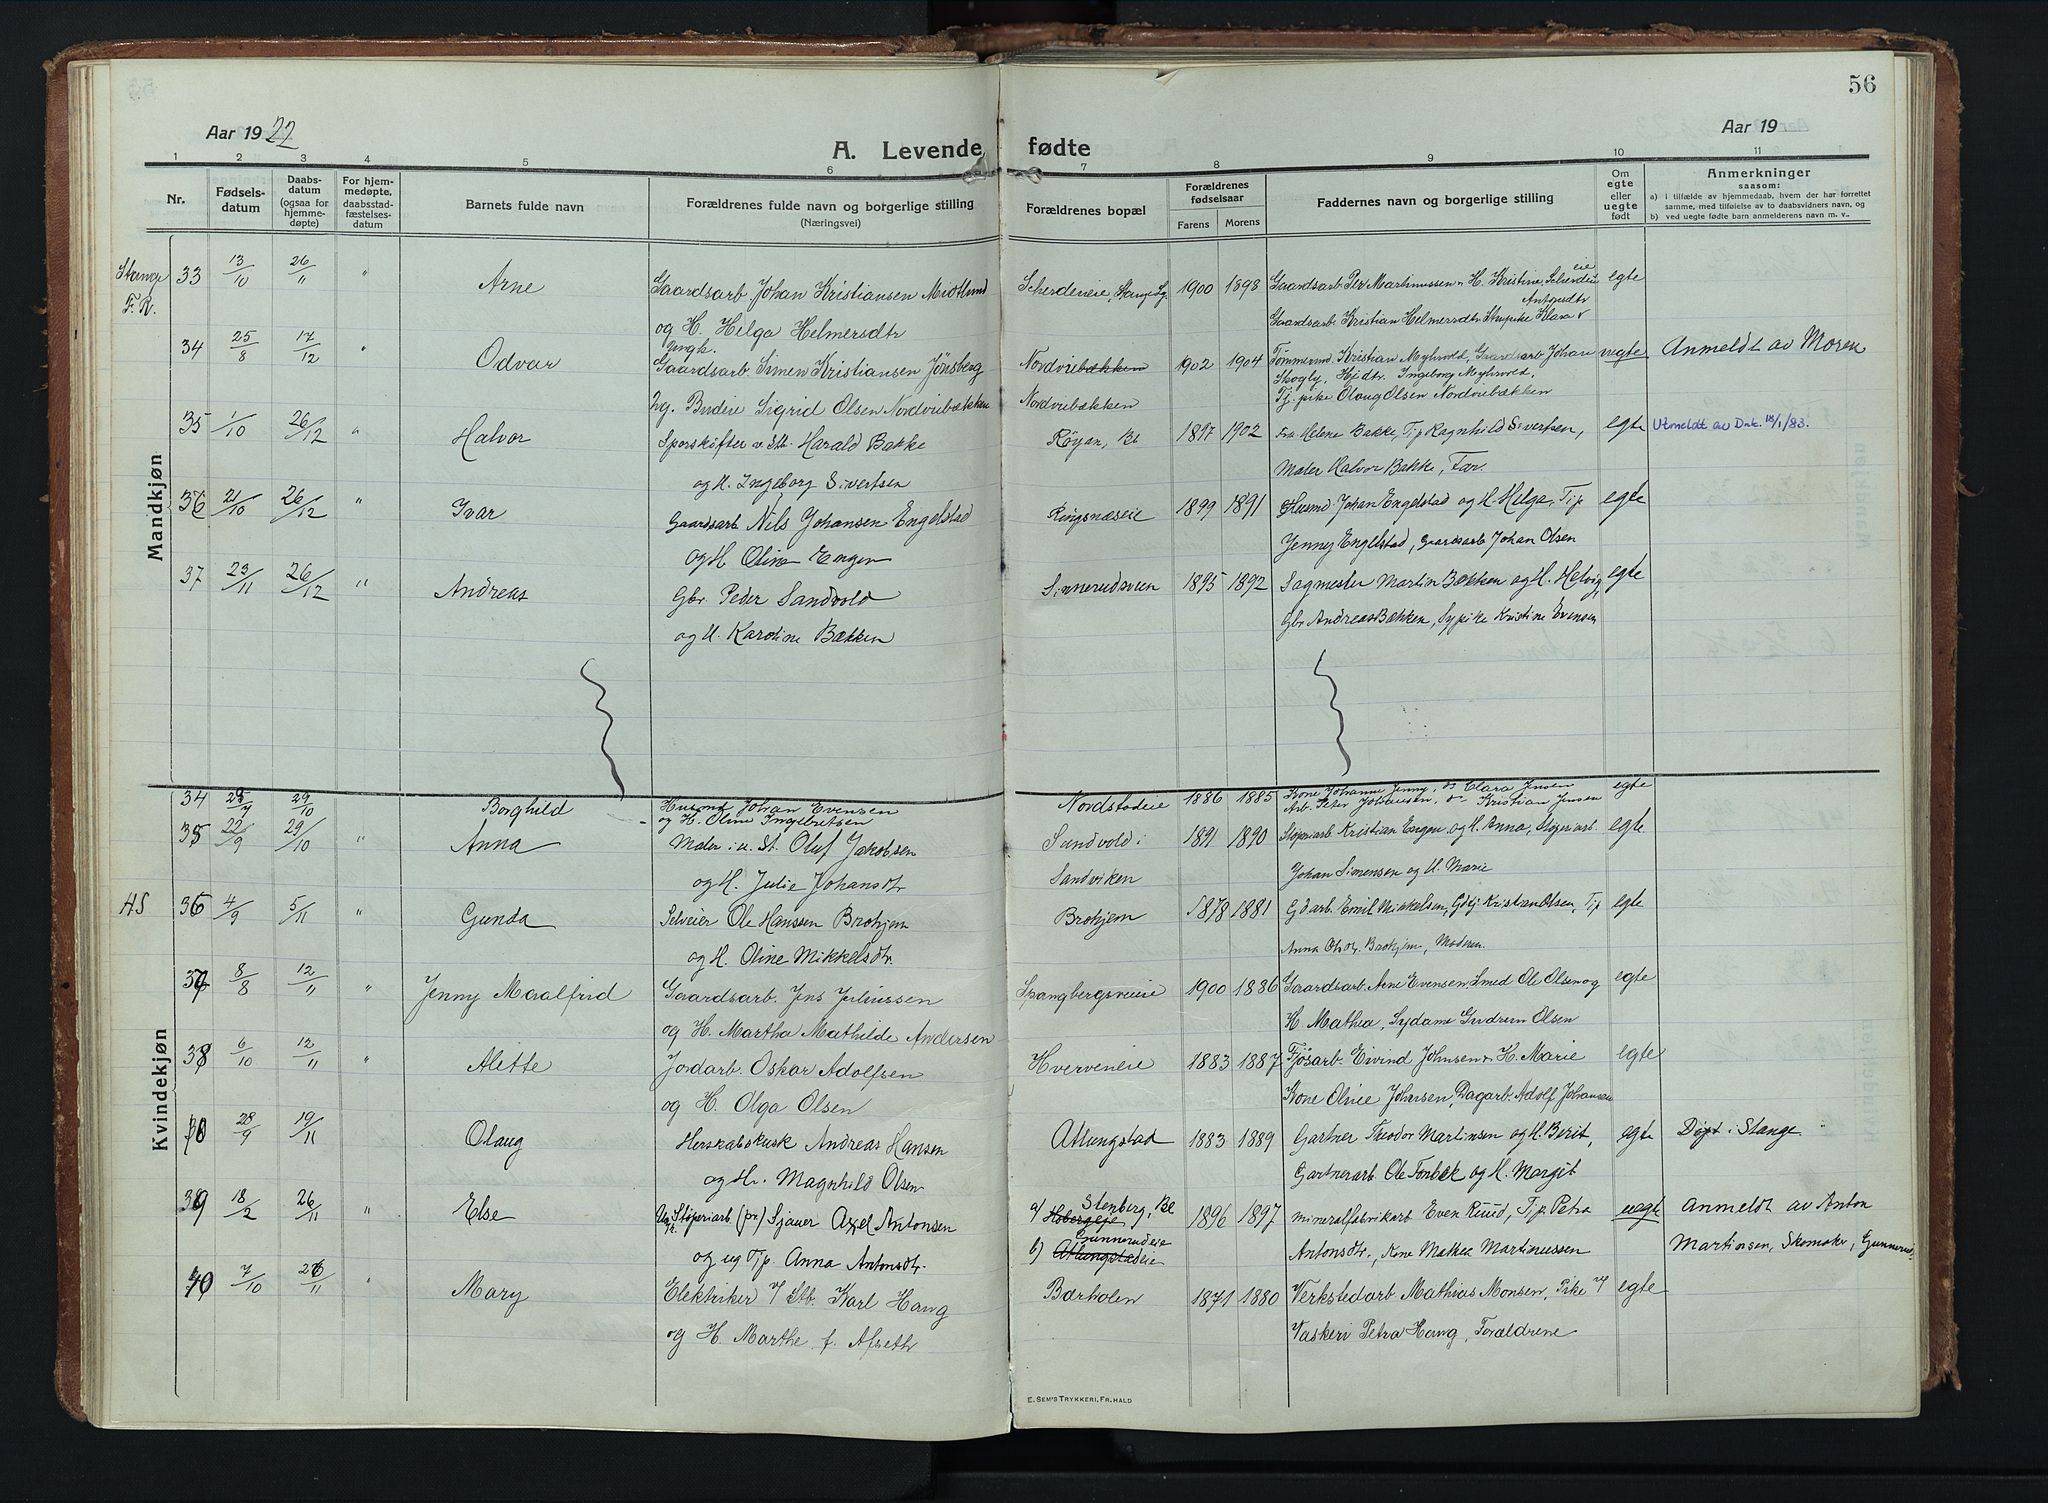 56
Aar 1922
A. Levende fødte
Aar 19
1 2 3 4 5 6 7 8 9 10 11
Nr.
Fødsels-
datum
Daabs-
datum
(ogsaa for
hjemme-
døpte)
For hjem-
medøpte,
daabsstad-
fæstelses-
datum
Barnets fulde navn
Forældrenes fulde navn og borgerlige stilling
(Næringsvei)
Forældrenes bopæl
Forældrenes
fødselsaar
Farens Morens
Faddernes navn og borgerlige stilling
Om
egte
eller
uegte
født
Anmerkninger
saasom:
a) i tilfælde av hjemmedaab, hvem der har forrettet
samme, med tilføielse av to daabsvidners navn, og
b) ved uegte fødte barn anmelderens navn m. v..
Mandkjøn
Stange 33 13/10 26/11 " Arne Gaardsarb. Johan Kristiansen Midtlund 1900 1898 Gaardsarb. Per Martinussen egte
F.K. og H. Helga Helmersdtr Gaardsarb. Kristian
34 25/8 17/12 " Odvar Gaardsarb. Simen Kristiansen Jönsberg Nordviebækken 1902 1904 Tømmermd. Kristian Myhvold, Gaardsarb Johan uegte Anmeldt av Moren
Ug. Budeie Sigrid Olsen Nordviebækken Nordviebækken Skogly, Ingeborg Myhvold,
Tj. pike Olaug Olsen Nordviebækken
35 1/10 26/12 " Halvor Sporskifter v. Stb. Harald Bakke 1897 1902 Fru Helene Bakke, Tjp Ragnhild Sivertsen, egte Utmeldt av Dnk.
og H. Ingeborg Sivertsen Maler Halvor Bakke, Far.
36 21/10 26/12 " Ivar Gaardsarb Nils Johansen Engelstad Ringsnæseie 1899 1891 Husmd Johan Engelstad og H. Helga, Tjp egte
og H. Oline Engen Jenny Engelstad, Gaardsarb Johan Olsen
37 23/11 26/12 " Andreas Gbr. Peder Sandvold 1895 1892 Sagmester Martin Bækken og H. Helvig, egte
og H. Karoline Bækken Gbr Andreas Bækken, Sypike Kristine Evensen
Kvindekjøn
34 29/10 Borghild Husmd Johan Evensen Nordstadeie 1886 1885 Kone Johanne Jenny, Clara Jensen egte
og H. Oline Ingebretsen Arb. Peter Johansen, Kristian Jensen
35 22/9 29/10 " Anna Maler i u. St. Oluf Jakobsen Sundvold i 1891 1890 Støperiarb Kristian Engen og H. Anna, Støperiarb egte
og H. Julie Johansdtr Sandviken Johan Simensen og H. Marie
HS 36 4/9 5/11 " Gunda Selveier Ole Hanssen Brohjem Brohjem 1878 1881 Gdarb. Emil Mikkelsen, Gdej Kristian Olsen, Tjp egte
og H. Oline Mikkelsdtr. Anna Olsdtr. Brohjem, Moderen.
37 8/8 12/11 " Jenny Maalfrid Gaardsarb. Jens Juliussen 1900 1886 Gaardsarb. Arne Evensen, Smed Ole Olsen og egte
og H. Martha Mathilde Andersen H. Mathea, Sydame Gudrun Olsen
38 6/10 12/11 " Alette Jordarb. Oskar Adolfsen Hverveneie 1883 1887 Fjøsarb. Eivind Johnsen H. Marie egte
og H. Olga Olsen Kone Oline Johnsen, Dagarb. Adolf Johansen
28/9 19/11 Olaug Herskabskusk Andreas Hansen Atlungstad 1883 1889 Gartner Theodor Martinsen og H. Berit, egte Døpt i Stange
og H. Magnhild Olsen Gartnerarb Ole Fonbæk og H. Margit
39 18/2 26/11 " Else Støperiarb (pr.) Sjauer Axel Antonsen a) Stenberg, 1896 1897 Mineralfabrikarb Even Ruud, Tjp Petra uegte Anmeldt av Anton
og ug Tjp. Anna Antonsdtr. b) Gunnerudeie Atlungstadeie Antonsdtr., Kone Mathea Martinussen Martinsen, Skomaker, Gunnerud
40 7/10 26/11 " Mary Elektriker v/ Stb. Karl Haug 1871 1880 Verkstedarb Mathias Monsen, Pike v/ egte
og H. Marthe f. Afseth Vaskeri Petra Haug, Forældrene
E. SEM'S TRYKKERI, FR.HALD